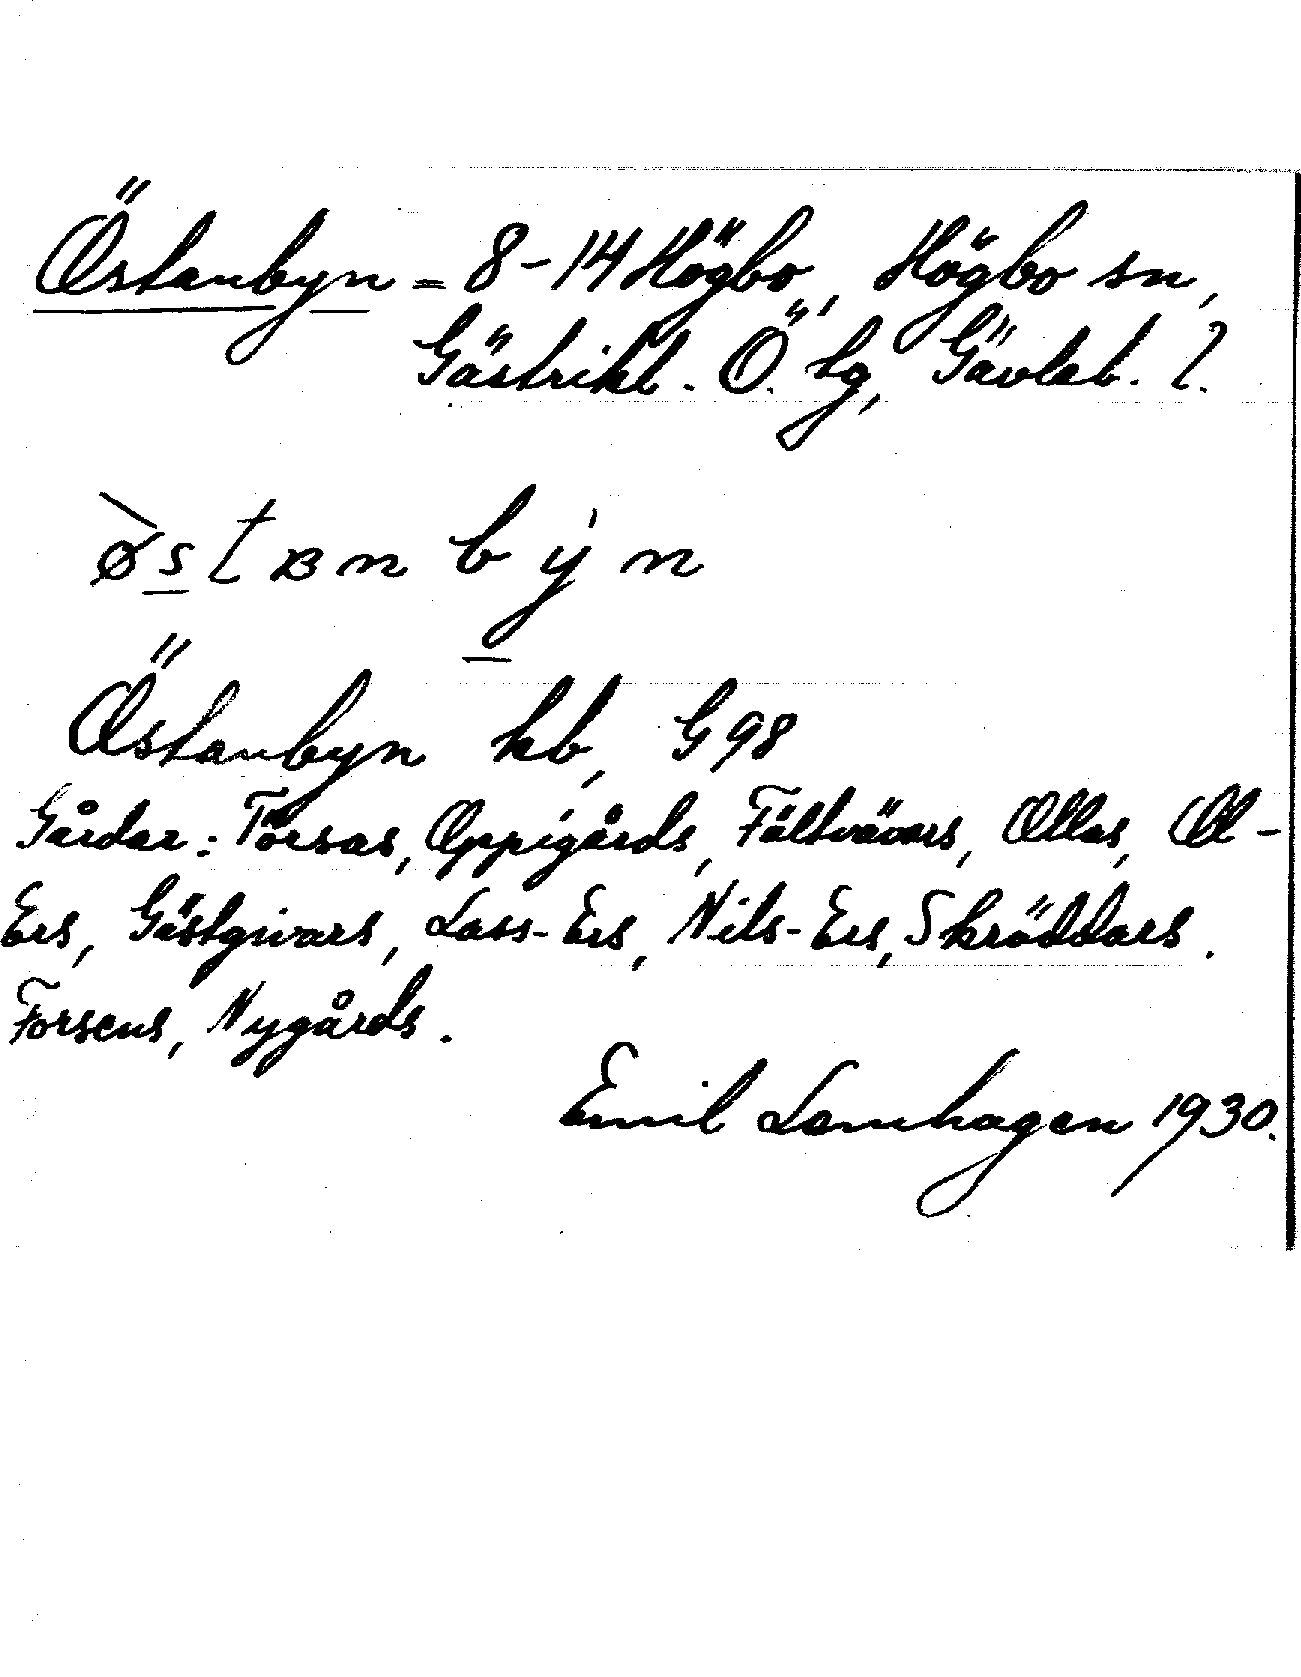 Östanbyn = 8-14 Högbo, Högbo sn,
Gästrikl. Ö. tg, Gävleb. l.
østʙnbyn
Östanbyn kb, G98
Gårdar: Torsas, Oppigårds, Fältvävars, Ollas, Ol-
Ers, Gästgivars, Lass-Ers, Nils-Ers, Skröddars.
Forsens, Nygårds.
Emil Lemhagen 1930.